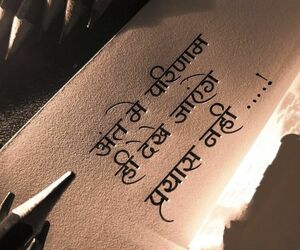 अंत में परिणाम
ही देखे जाएंगे
प्रयास नही ....!